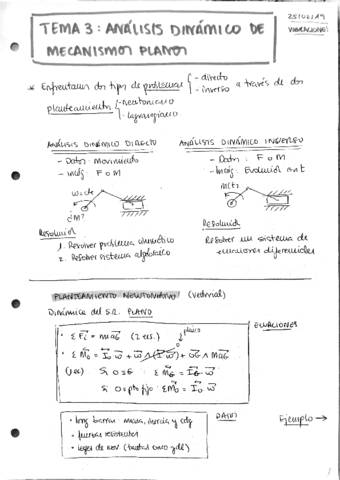 25/02/19
VIBRACIONES
TEMA 3: ANÁLISIS DINÁMICO DE
MECANISMOS PLANOS
* Enfrentamos dos tipos de problemas
- directo
- inverso
a través de dos
planteamientos
- newtoniano
- lagrangiano
ANÁLISIS DINÁMICO DIRECTO
- Datos: movimiento
- Incóg: F o M
ω=cte
¿M?
Resolución
1. Resolver problema cinemático
2. Resolver sistema algebraico
ANÁLISIS DINÁMICO INVERSO
- Datos: F o M
- Incóg: Evolución
M(t)
Resolución
Resolver un sistema de
ecuaciones diferenciales
PLANTEAMIENTO NEWTONIANO (vectorial)
Dinámica del S.R. PLANO
ECUACIONES
• ΣF⃗i = m a⃗G (2 ecs.)
plano
0
• ΣM⃗o = I⃗o ω̇⃗ + ω⃗ ∧ (I⃗ ω⃗) + OG⃗ ∧ m a⃗G
Si O≡G: ΣM⃗G = I⃗G ω̇⃗
Si O=pto fijo: ΣM⃗o = I⃗o ω̇⃗
DATOS
• long barras, masa, inercia y cdg
• fuerzas resistentes
• leyes de mov. (tantas como gdl)
Ejemplo →